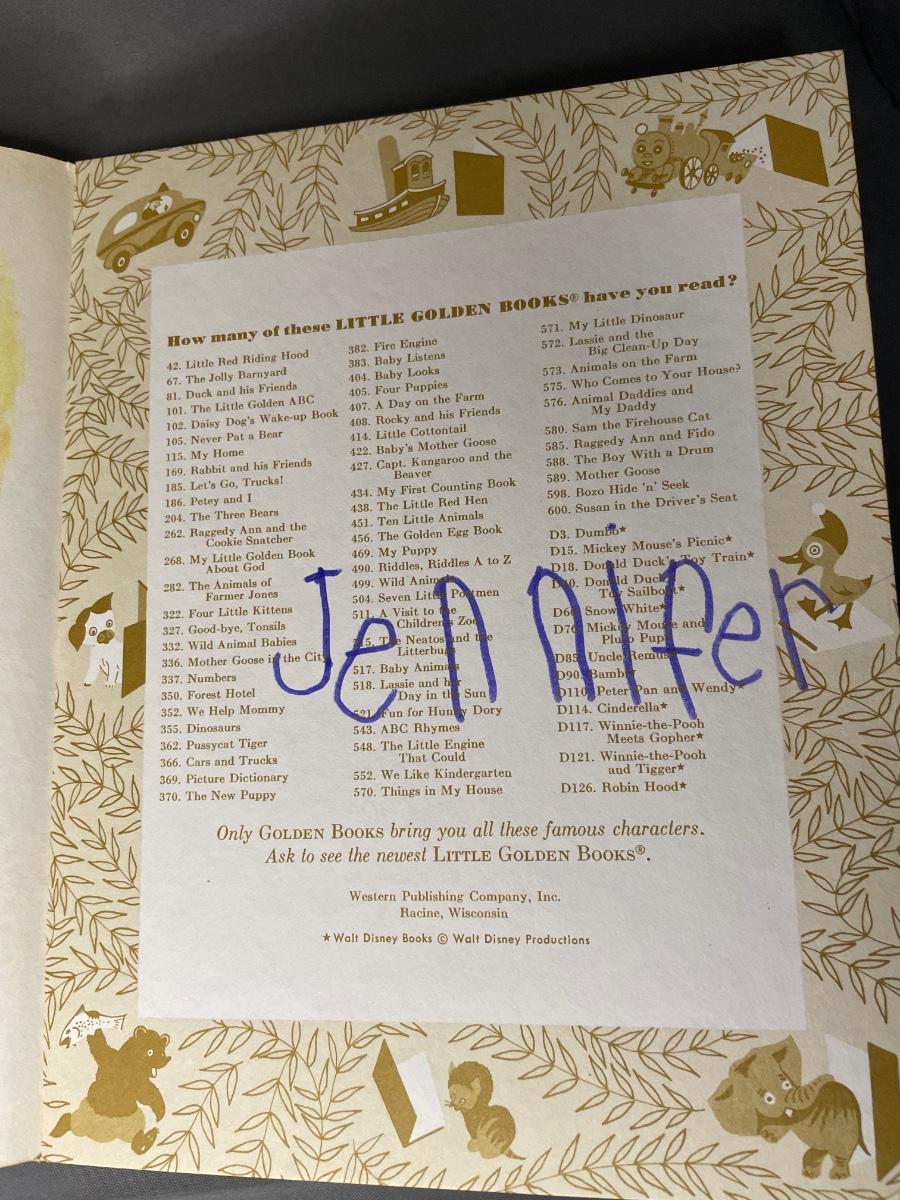 How many of these LITTLE GOLDEN BOOKS® have you read?
42. Little Red Riding Hood
67. The Jolly Barnyard
81. Duck and his Friends
101. The Little Golden ABC
102. Daisy Dog's Wake-up Book
105. Never Pat a Bear
115. My Home
169. Rabbit and his Friends
185. Let's Go, Trucks!
186. Petey and I
204. The Three Bears
262. Raggedy Ann and the
Cookie Snatcher
268. My Little Golden Book
About God
282. The Animals of
Farmer Jones
322. Four Little Kittens
327. Good-bye, Tonsils
332. Wild Animal Babies
336. Mother Goose in the City
337. Numbers
350. Forest Hotel
352. We Help Mommy
355. Dinosaurs
362. Pussycat Tiger
366. Cars and Trucks
369. Picture Dictionary
370. The New Puppy
382. Fire Engine
383. Baby Listens
404. Baby Looks
405. Four Puppies
407. A Day on the Farm
408. Rocky and his Friends
414. Little Cottontail
422. Baby's Mother Goose
427. Capt. Kangaroo and the
Beaver
434. My First Counting Book
438. The Little Red Hen
451. Ten Little Animals
456. The Golden Egg Book
469. My Puppy
490. Riddles, Riddles A to Z
499. Wild Animals
504. Seven Little Postmen
511. A Visit to the
Children's Zoo
515. The Neatos and the
Litterbugs
517. Baby Animals
518. Lassie and her
Day in the Sun
521. Fun for Hunky Dory
543. ABC Rhymes
548. The Little Engine
That Could
552. We Like Kindergarten
570. Things in My House
571. My Little Dinosaur
572. Lassie and the
Big Clean-Up Day
573. Animals on the Farm
575. Who Comes to Your House?
576. Animal Daddies and
My Daddy
580. Sam the Firehouse Cat
585. Raggedy Ann and Fido
588. The Boy With a Drum
589. Mother Goose
598. Bozo Hide 'n' Seek
600. Susan in the Driver's Seat
D3. Dumbo★
D15. Mickey Mouse's Picnic★
D18. Donald Duck's Toy Train★
D40. Donald Duck's
Toy Sailboat★
D66. Snow White★
D76. Mickey Mouse and
Pluto Pup★
D85. Uncle Remus★
D90. Bambi★
D110. Peter Pan and Wendy★
D114. Cinderella★
D117. Winnie-the-Pooh
Meets Gopher★
D121. Winnie-the-Pooh
and Tigger★
D126. Robin Hood★
Jennifer
Only GOLDEN BOOKS bring you all these famous characters.
Ask to see the newest LITTLE GOLDEN BOOKS®.
Western Publishing Company, Inc.
Racine, Wisconsin
★Walt Disney Books © Walt Disney Productions